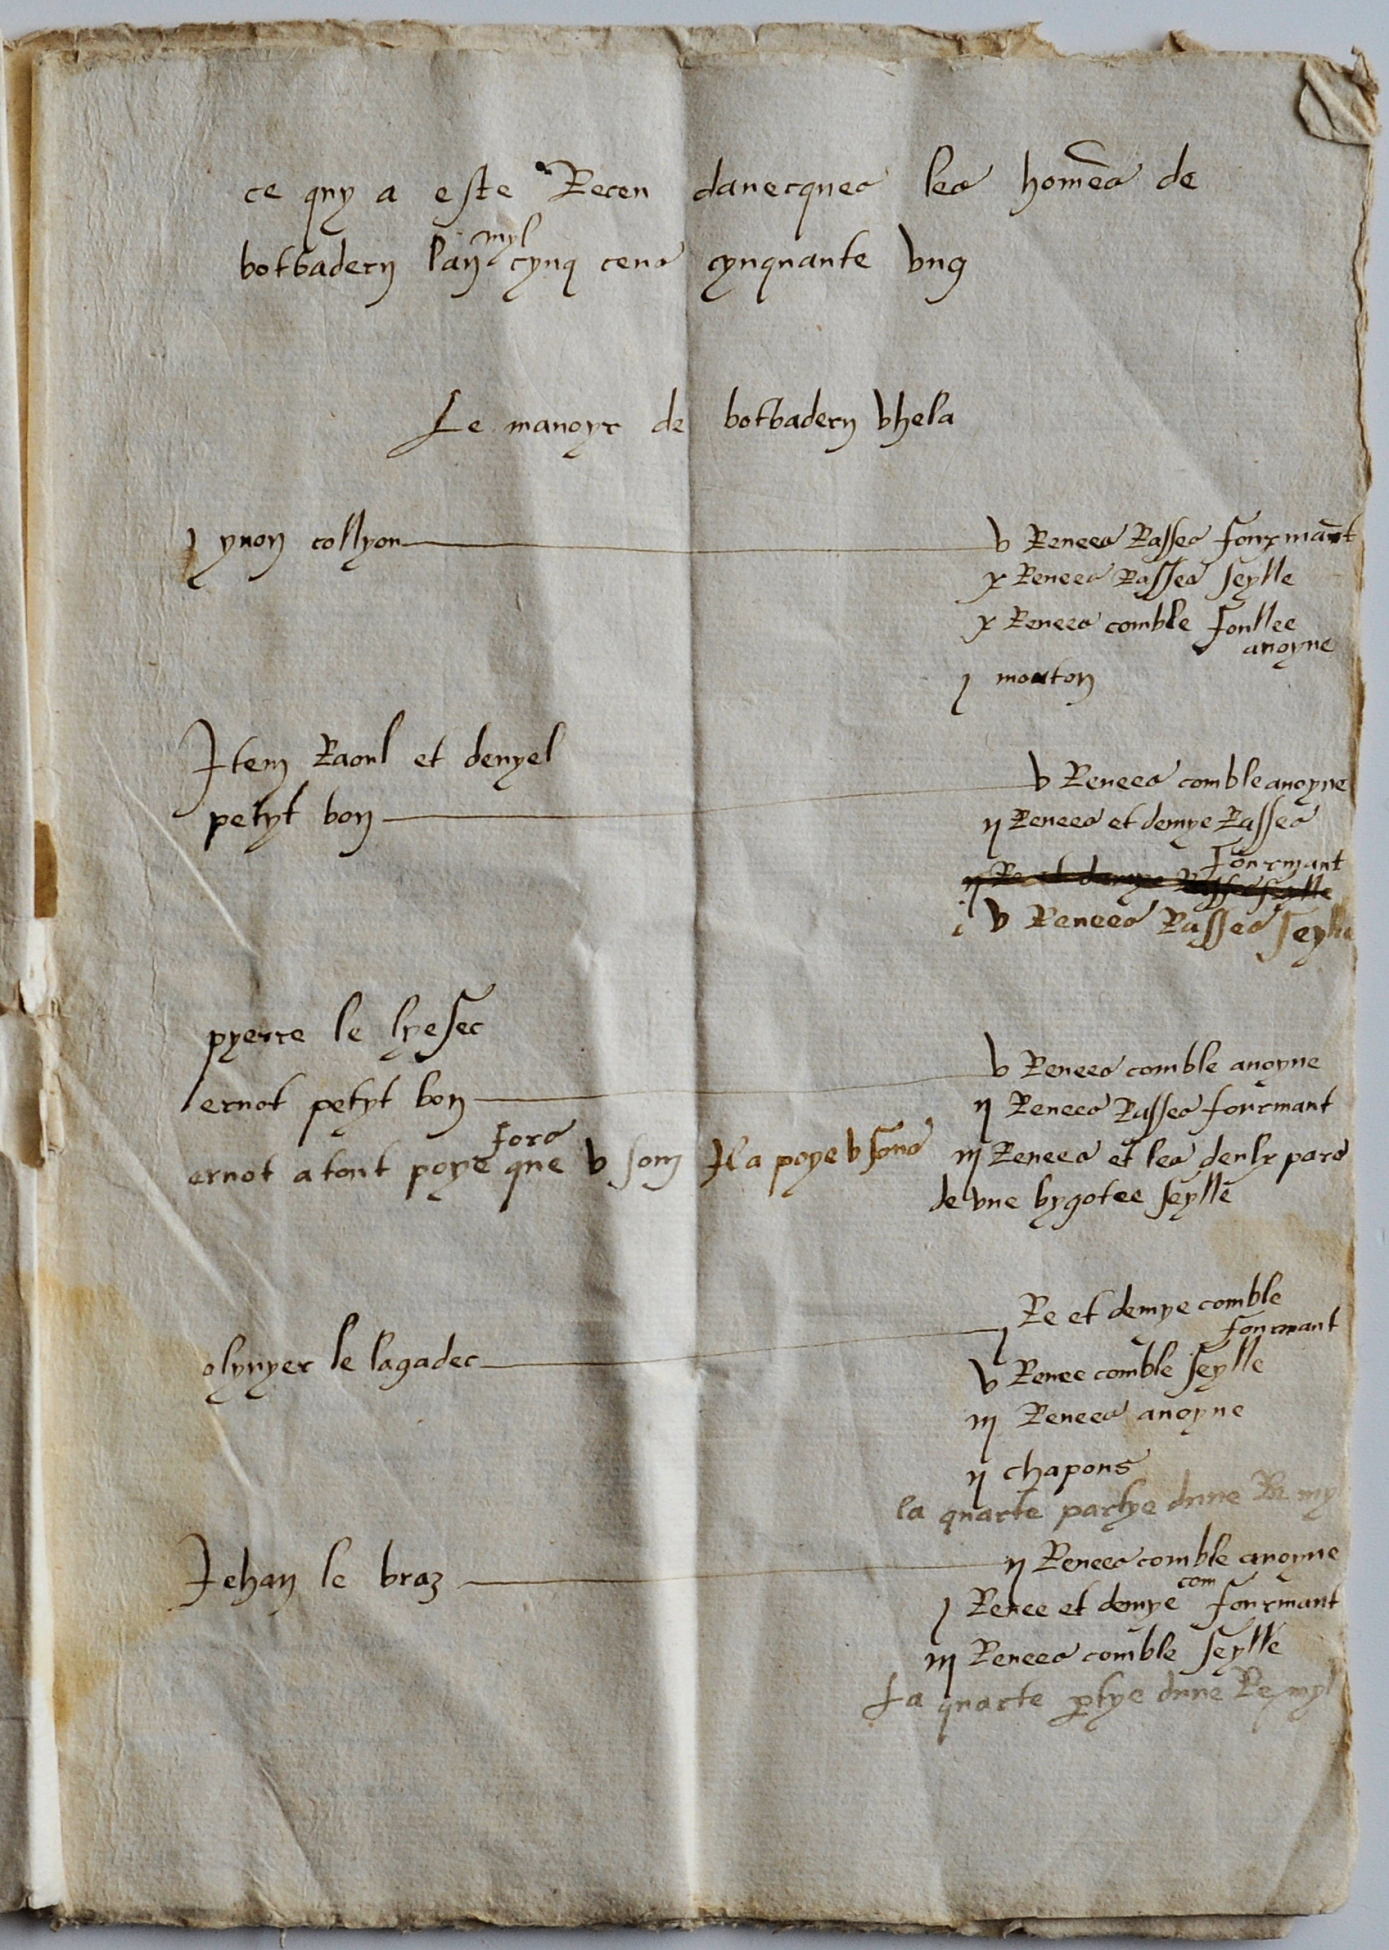 ce quy a este Receu davecques les homes de
botbadern lan myl cynq cens cynquante ung
Le manoyr de botbadern vhela
yvon collyon v Renees Rasses fourmant
x Renees Rasses seylle
x Renees comble foullee
avoyne
j mouton
Item Raoul et denyel
petyt bon v Renees comble avoyne
ij Renees et demye Rasses
fourmant
ij Re et demye Rasses seylle
v Renees Rasses seylle
pyerre le lyesec
ernot petyt bon v Renees comble avoyne
ij Renees Rasses fourmant
ernot a tout poye fors que v som Il a poye v sous
iij Renees et les deulx pars
de une bygotee seylle
j Re et demye comble
fourmant
olyvyer le lagadec
v Renee comble seylle
iij Renees avoyne
ij chapons
la quarte partye dune Re
Jehan le braz ij Renees comble avoyne
j Renee et demye com fourmant
iij Renees comble seylle
La quarte ptye dune Re myl